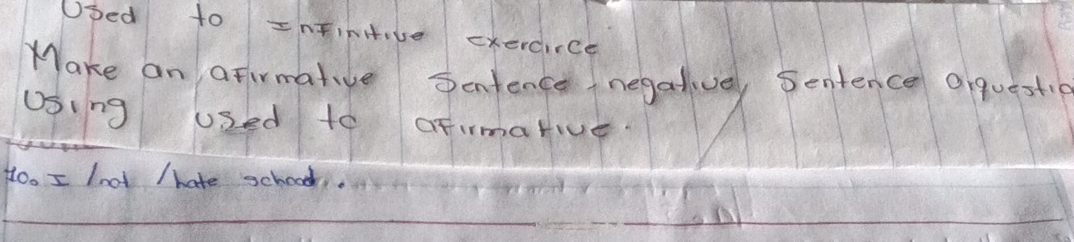 Used to infinitive exercirce
Make an afirmative sentence, negative, sentence orquestio
Using used to afirmative.
10. I /not /hate school.